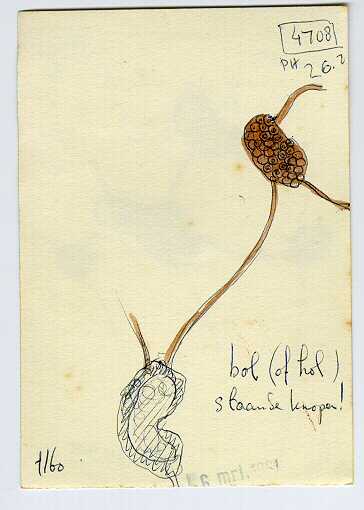 4708
PH 26.2
bol (of hol)
staande knopen!
1160
6 mrt. 1991